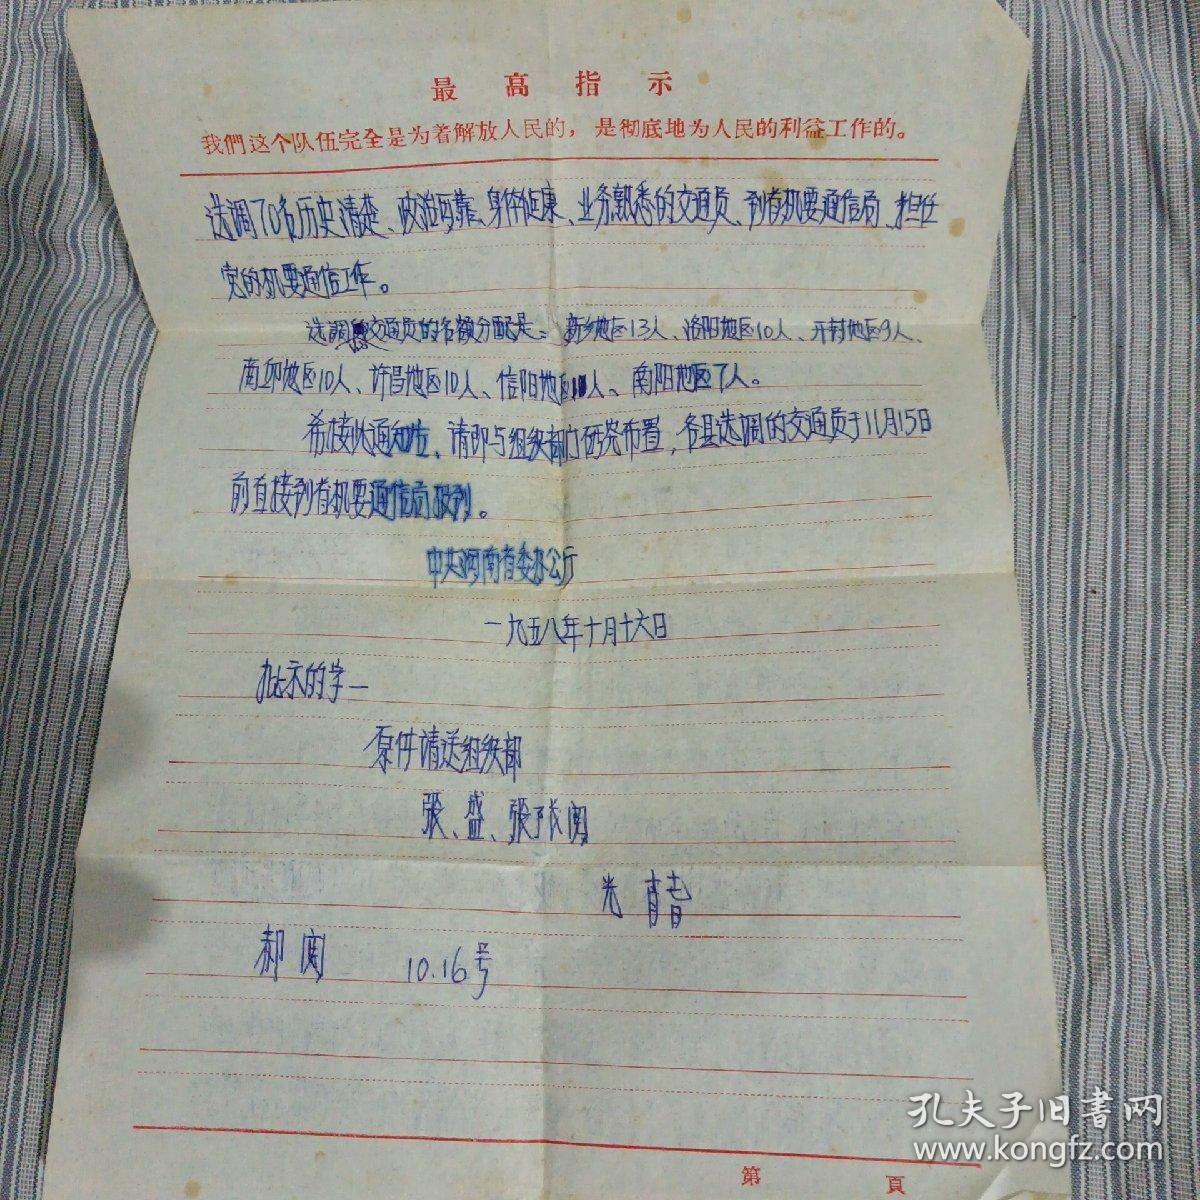 最高指示
我們这个队伍完全是为着解放人民的，是彻底地为人民的利益工作的。
选调70名历史清楚、政治可靠、身体健康、业务熟悉的交通员、到省机要通信局、担任
党的机要通信工作。
选调交通员的名额分配是：新乡地区13人、洛阳地区10人、开封地区9人、
商丘地区10人、许昌地区10人、信阳地区11人、南阳地区7人。
希接此通知后、请即与组织部门研究布置，各县选调的交通员于11月15日
前直接到省机要通信局报到。
中共河南省委办公厅
一九五八年十月十六日
批示的字—
原件请送组织部
张、盛、张 阅
光
郝阅 10.16号
第 頁
孔夫子旧書网
www.kongfz.com